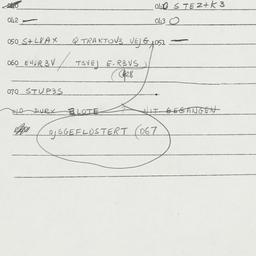 040 STEZ+K3
042 —
043 O
050 S+LPAX Q TRAKTOVS VEJG, 051 —
060 EUVR3V / TSVEJ E.R3VS, 068
070 STUP3S
DURX BLOTE NIT GEGANGEN
OJSGEFLOSTERT (067